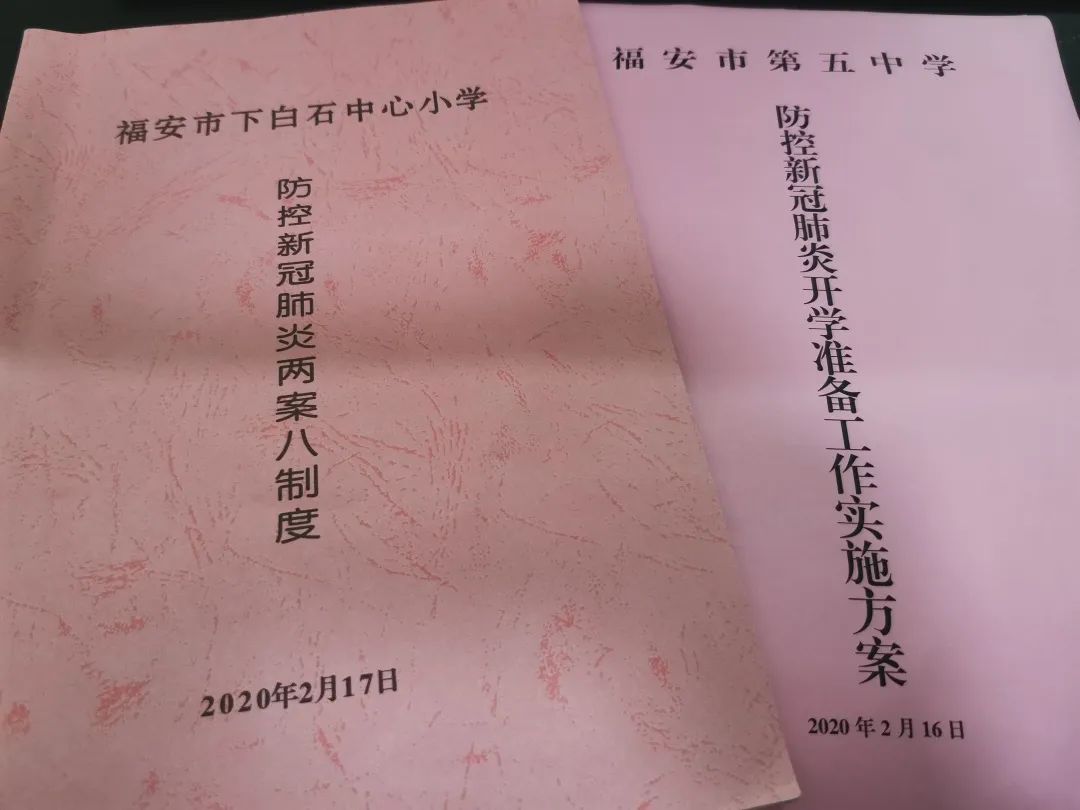 福安市下白石中心小学
防控新冠肺炎两案八制度
2020年2月17日
福安市第五中学
防控新冠肺炎开学准备工作实施方案
2020年2月16日